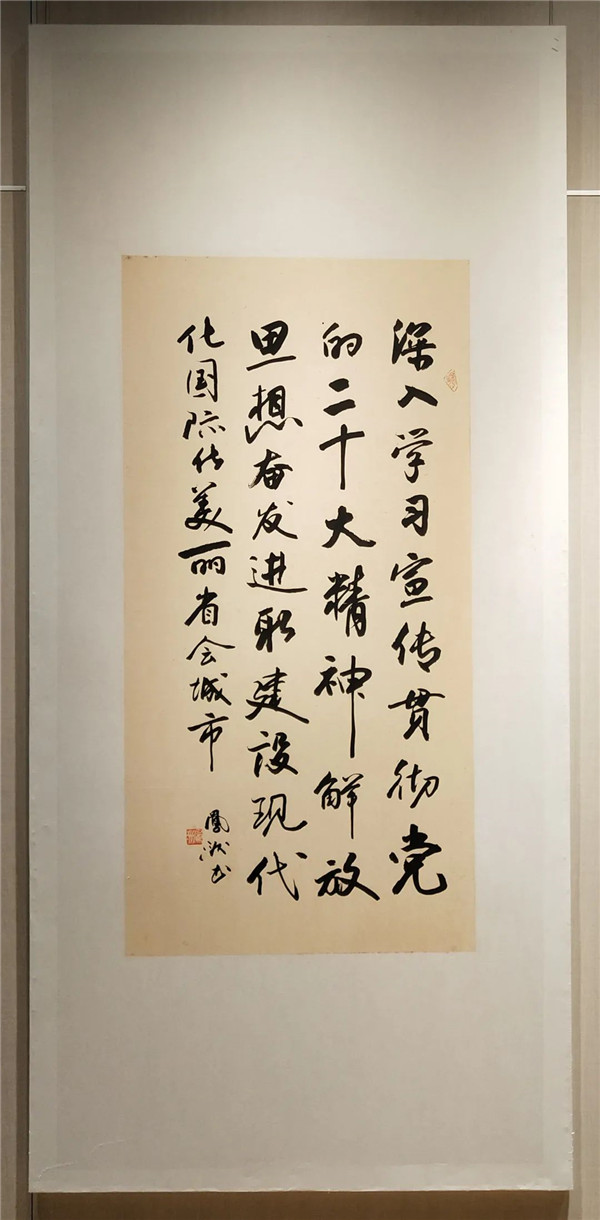 深入学习宣传贯彻党
的二十大精神解放
思想奋发进取建设现代
化国际化美丽省会城市
凤 书